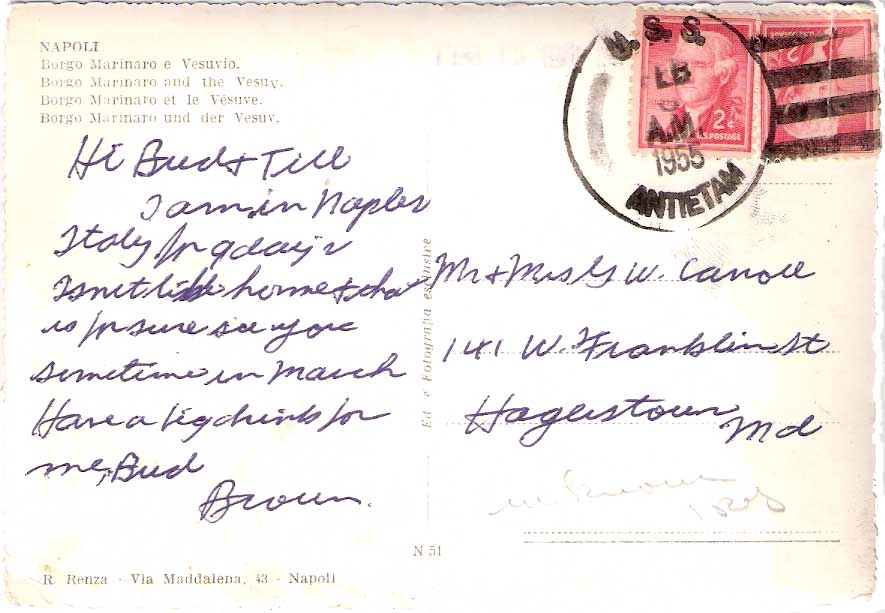 NAPOLI
Borgo Marinaro e Vesuvio.
Borgo Marinaro and the Vesuv.
Borgo Marinaro et le Vésuve.
Borgo Marinaro und der Vesuv.
Hi Bud &
I am in Naples
Italy for 9 days
Isnt like home & that
is for sure see you
sometime in March
Have a big drink for
me, Bud
Brown.
Ed. e Fotografia esclusive
N 51
R. Renza - Via Maddalena, 43 - Napoli
U. S. S.
A.M.
1955
ANTIETAM
2¢
U.S. POSTAGE
Mr & Mrs G W. Carroll
141 W. Franklin St
Hagerstown
Md